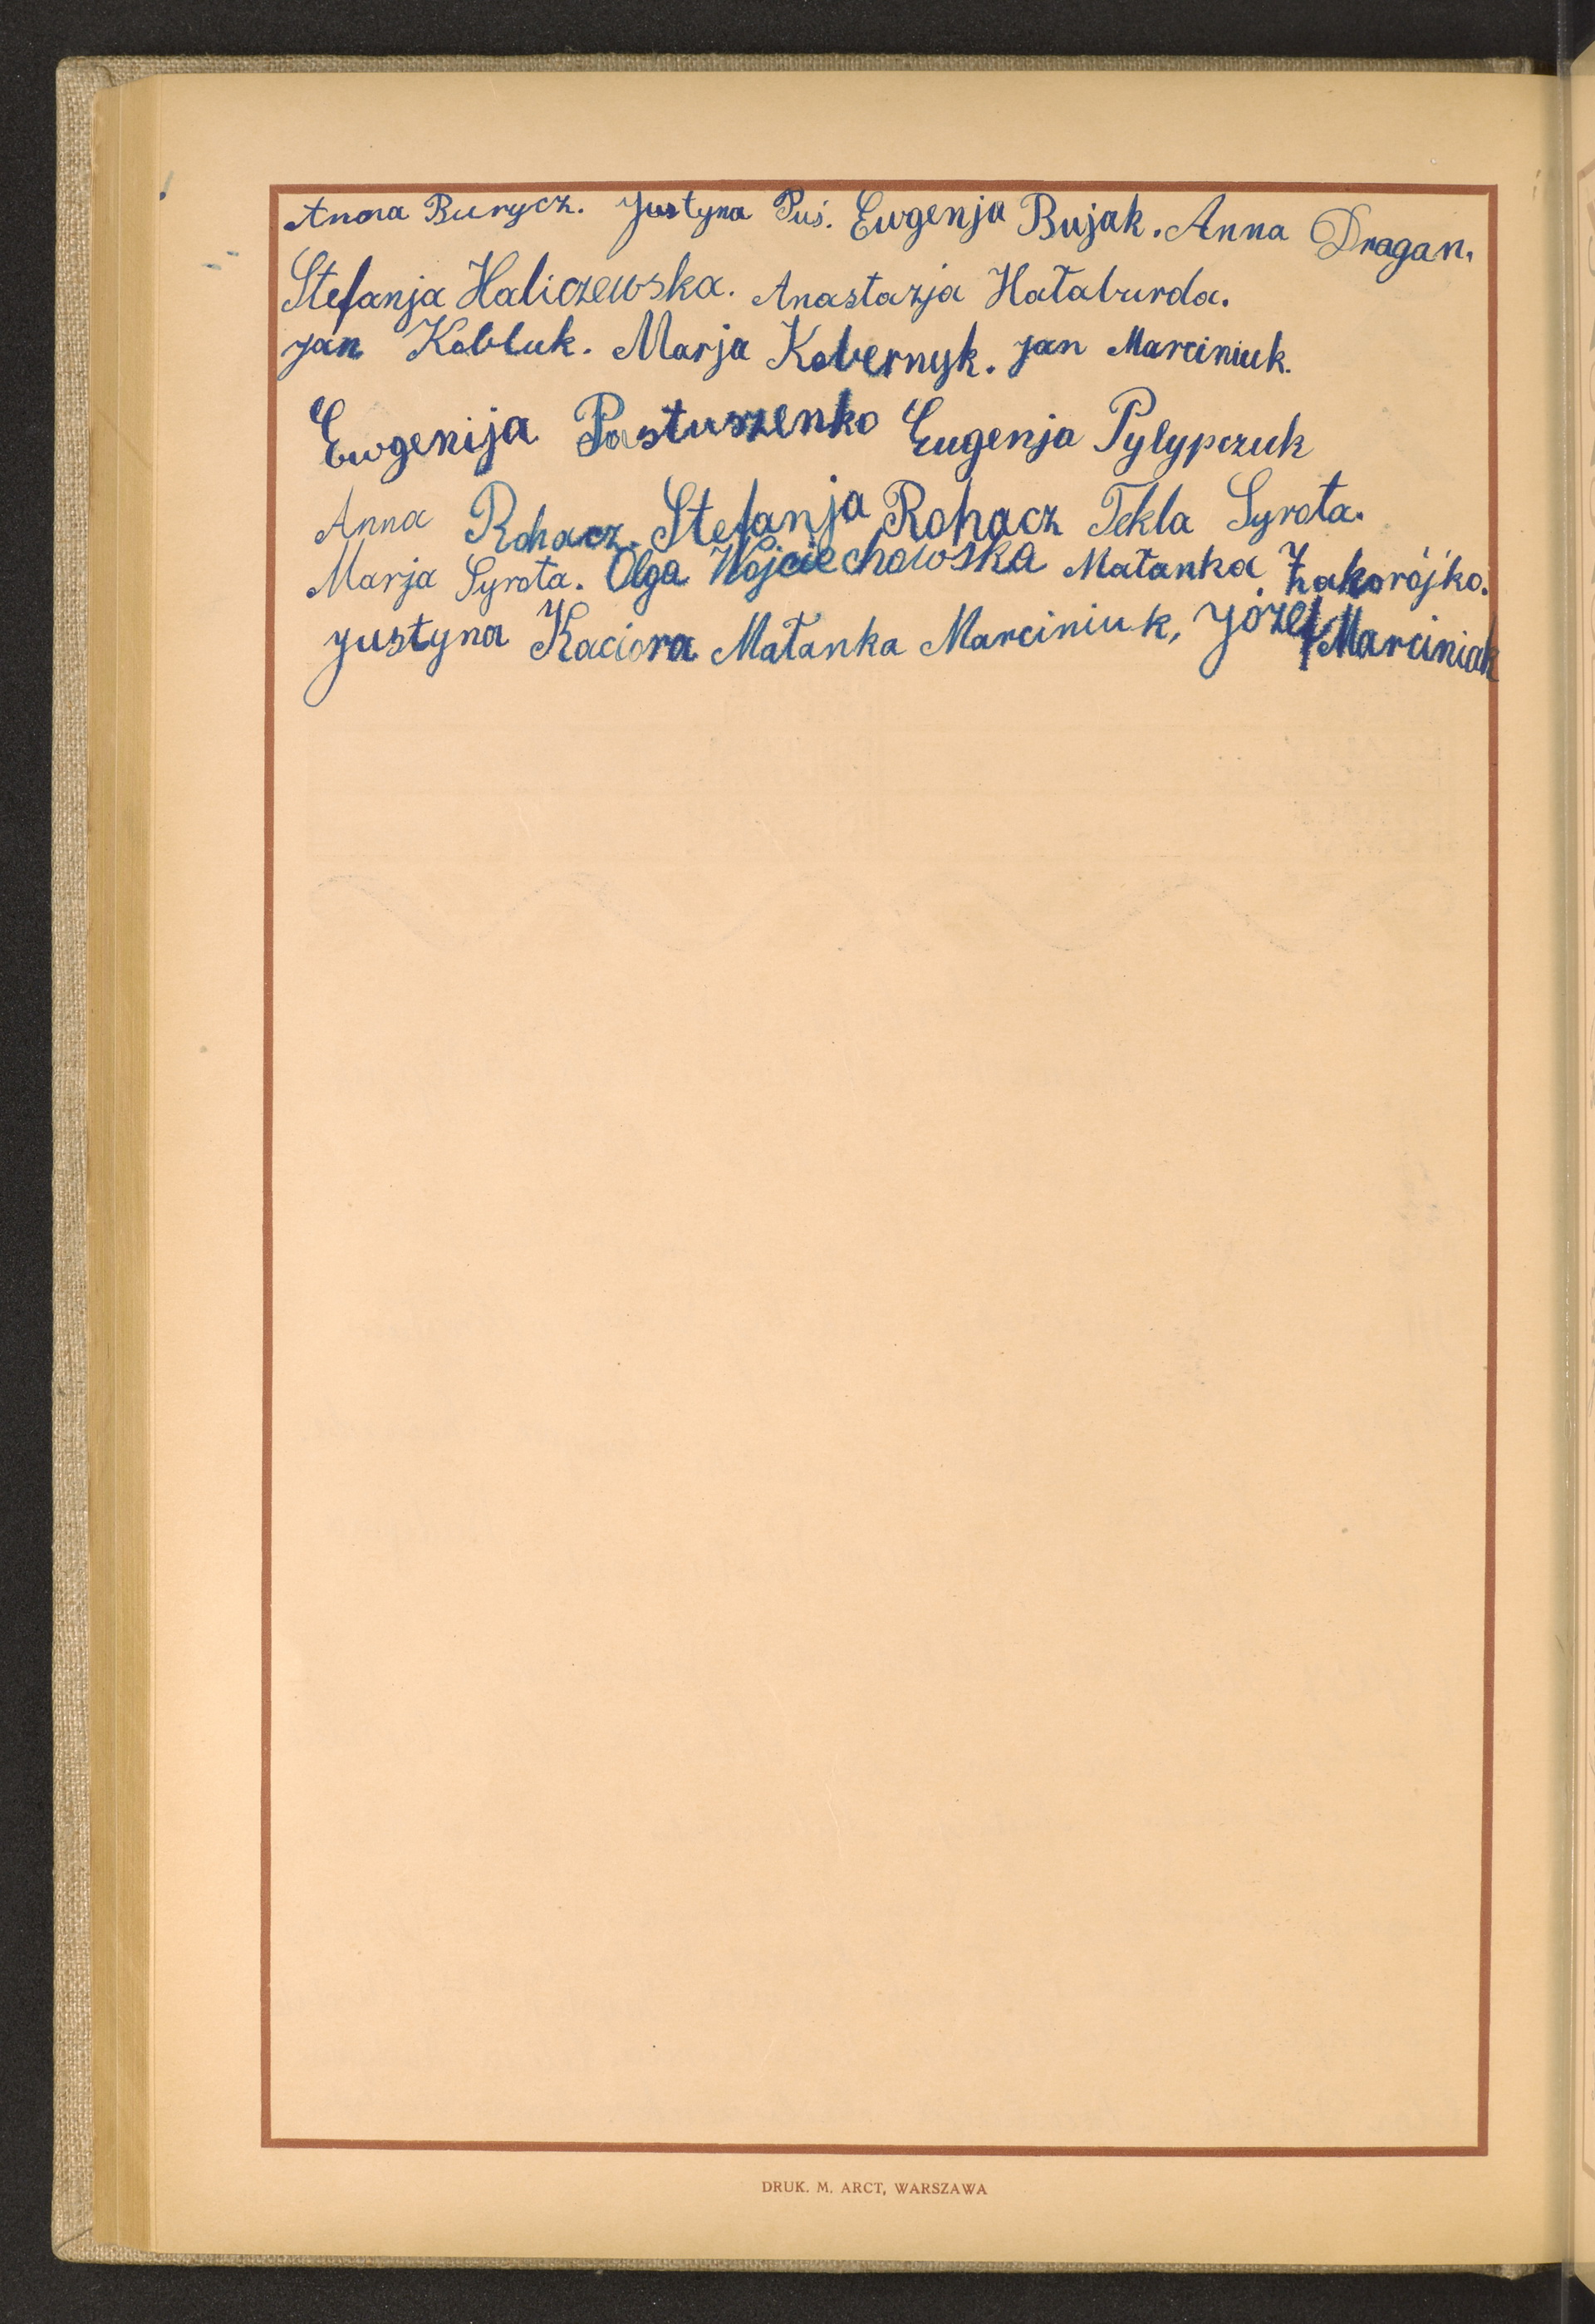 Anna Burycz. Justyna Puś. Ewgenja Bujak. Anna Dragan.
Stefanja Haliczewska. Anastazja Hałaburda.
Jan Kobluk. Marja Kobernyk. Jan Marciniuk.
Ewgenija Pastuszenko Eugenja Pylypczuk
Anna Rohacz. Stefanja Rohacz Tekla Syrota.
Marja Syrota. Olga Wojciechowska Małanka Zakorójko.
Justyna Kaciora Małanka Marciniuk, Józef Marciniak
DRUK. M. ARCT, WARSZAWA